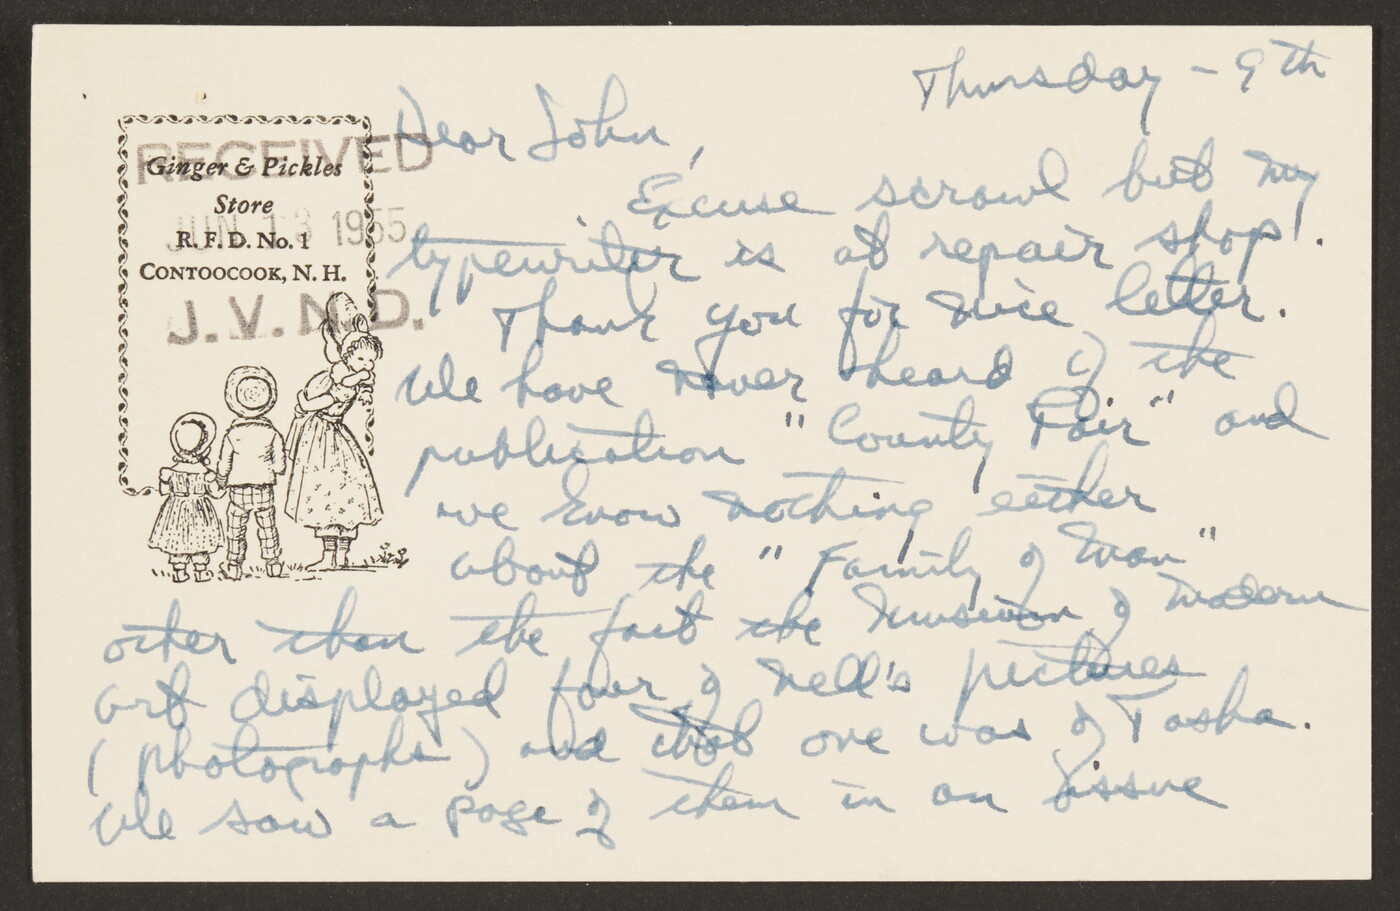 Thursday - 9th
Ginger & Pickles
Store
R. F. D. No. 1
CONTOOCOOK, N. H.
RECEIVED
JUN 13 1955
J. V. N. D.
Dear John,
Excuse scrawl but my
typewriter is at repair shop.
Thank you for nice letter.
We have never heard of the
publication "County Fair" and
we know nothing either
about the "Family of Man"
other than the fact the Museum of Modern
art displayed four of Nell's pictures
(photographs) and that one was of Tasha.
We saw a page of them in an issue